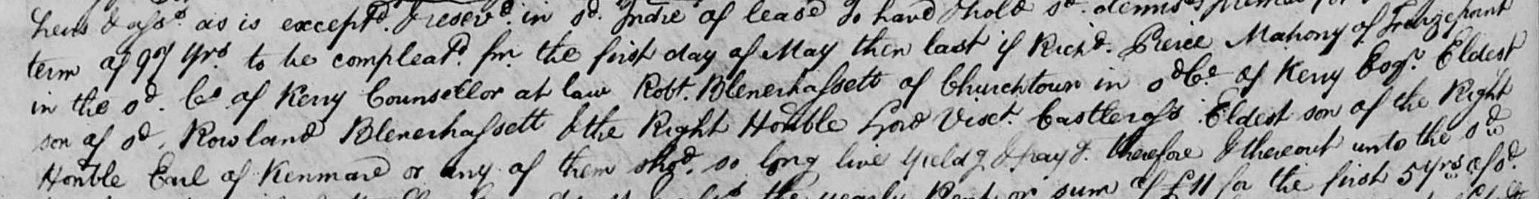 heirs & ass.s as is except.d & reserv.d in s.d Indre of lease To have & hold s.d demis.d premes for
term of 99 yrs to be compleat.d fm. the first day of May then last if Rich.d Pierce Mahony of Grangepoint
in the s.d Co of Kerry Counsellor at law Robt. Blenerhassett of Churchtown in s.d Co of Kerry Esqr. Eldest
son of s.d Rowland Blenerhassett & the Right Honble Lord Visct. Castleross Eldest son of the Right
Honble Earl of Kenmare or any of them sho.d so long live yieldg & pay.g therefore & thereout unto the s.d
the yearly Rent or sum of £11 for the first 5 yrs of s.d